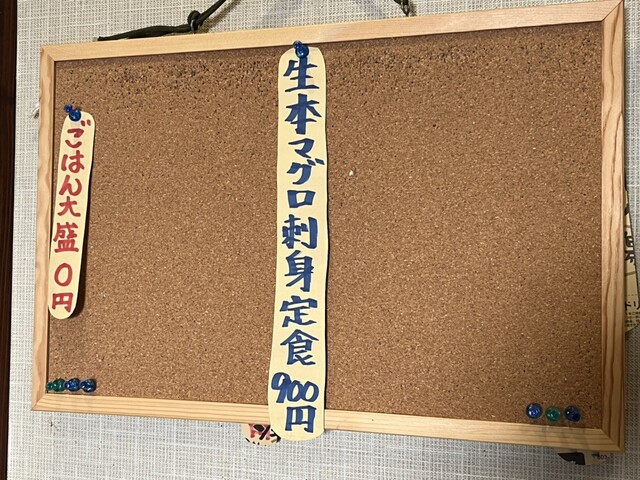 生本マグロ刺身定食 900円
ごはん大盛 0円